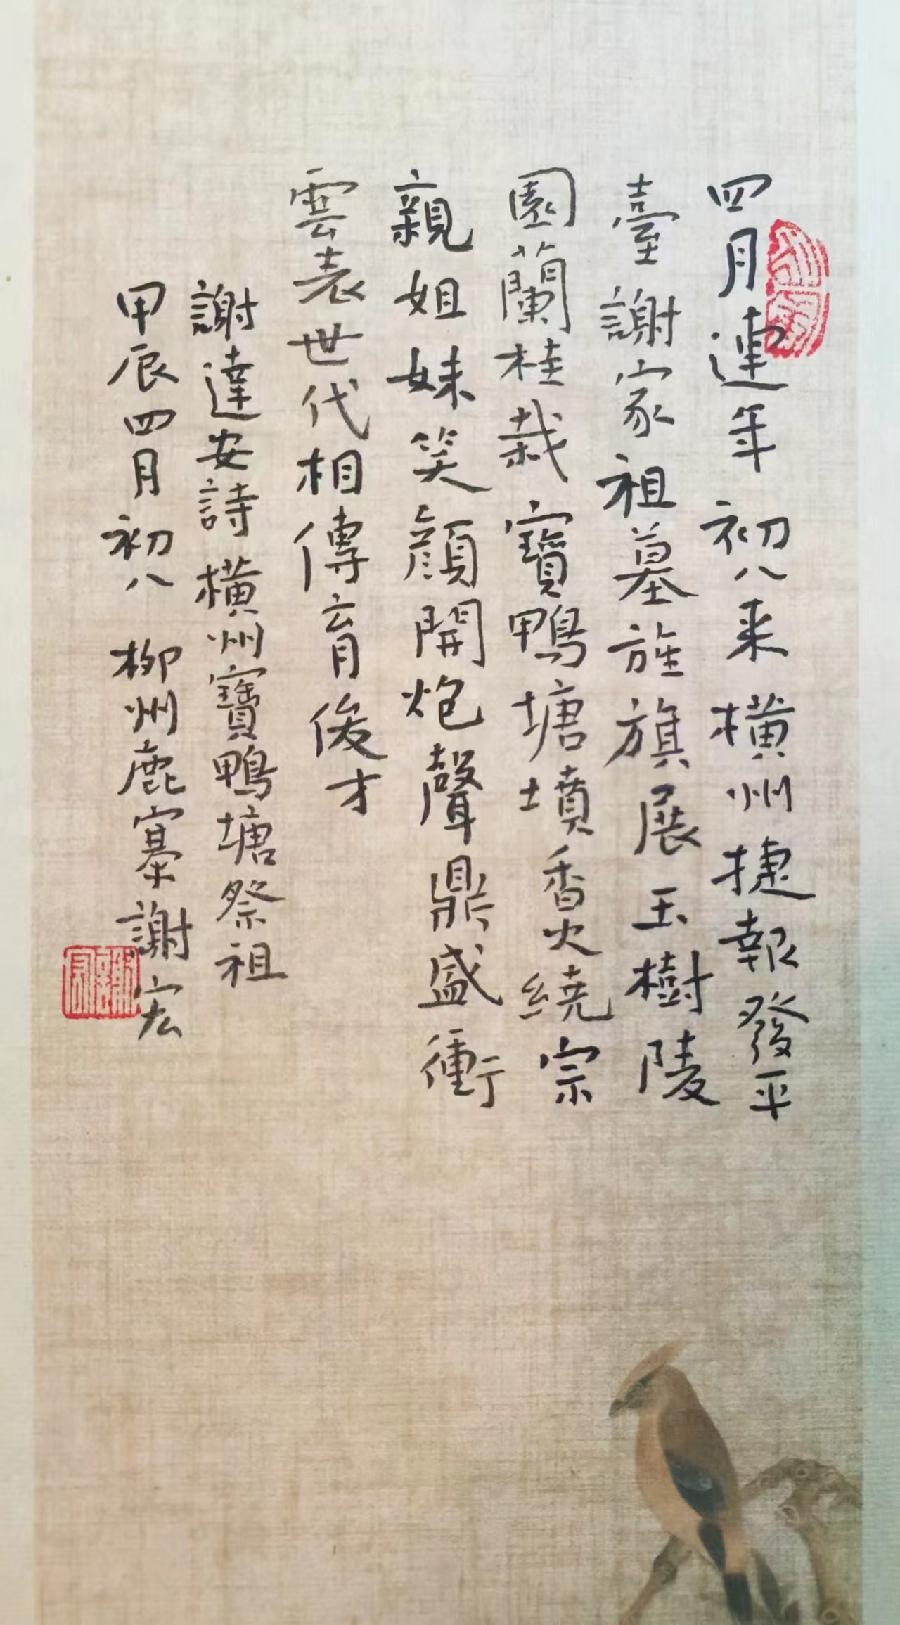 四月連年初八来橫州捷報發平
臺謝家祖墓旌旗展玉樹陵
園蘭桂栽寶鴨塘墳香火繞宗
親姐妹笑顏開炮聲鼎盛衝
雲表世代相傳育後才
謝達安詩橫州寶鴨塘祭祖
甲辰四月初八柳州鹿寨謝宏